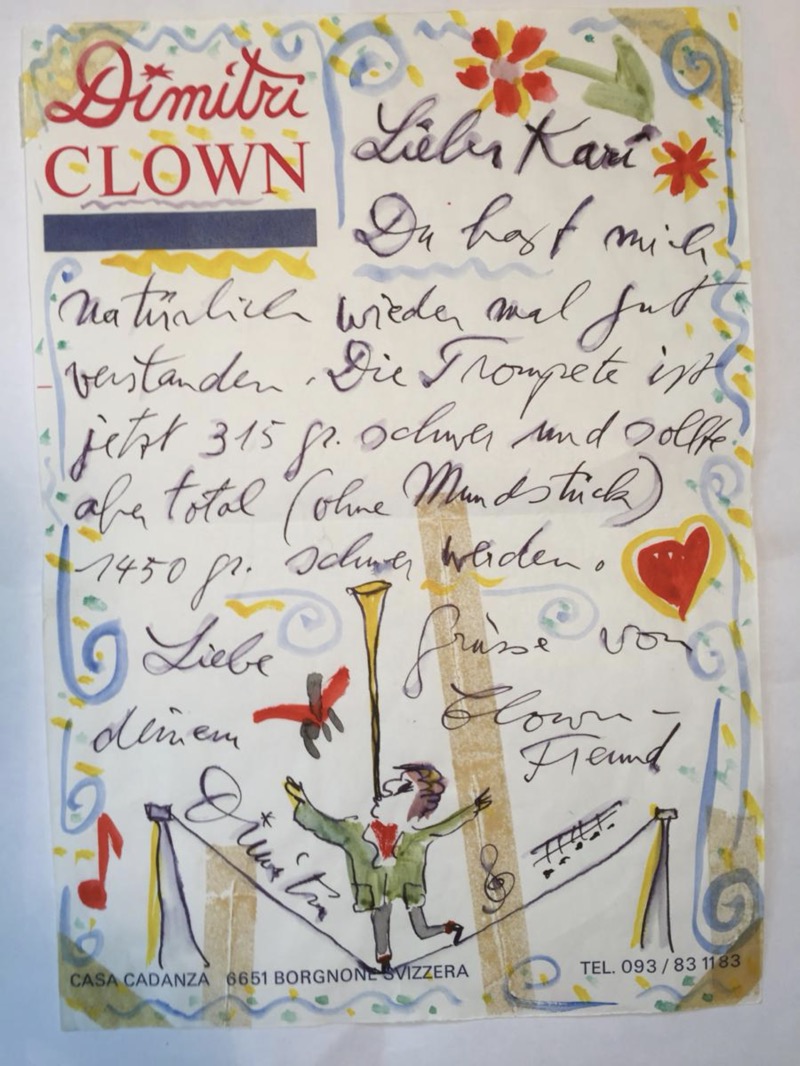 Dimitri
CLOWN
Lieber Kari
Du hast mich
natürlich wieder mal gut
verstanden. Die Trompete ist
jetzt 315 gr. schwer und sollte
aber total (ohne Mundstück)
1450 gr. schwer werden.
Liebe Grüsse von
deinem Clown-
Freund
Dimitri
CASA CADANZA 6651 BORGNONE SVIZZERA
TEL. 093 / 83 11 83